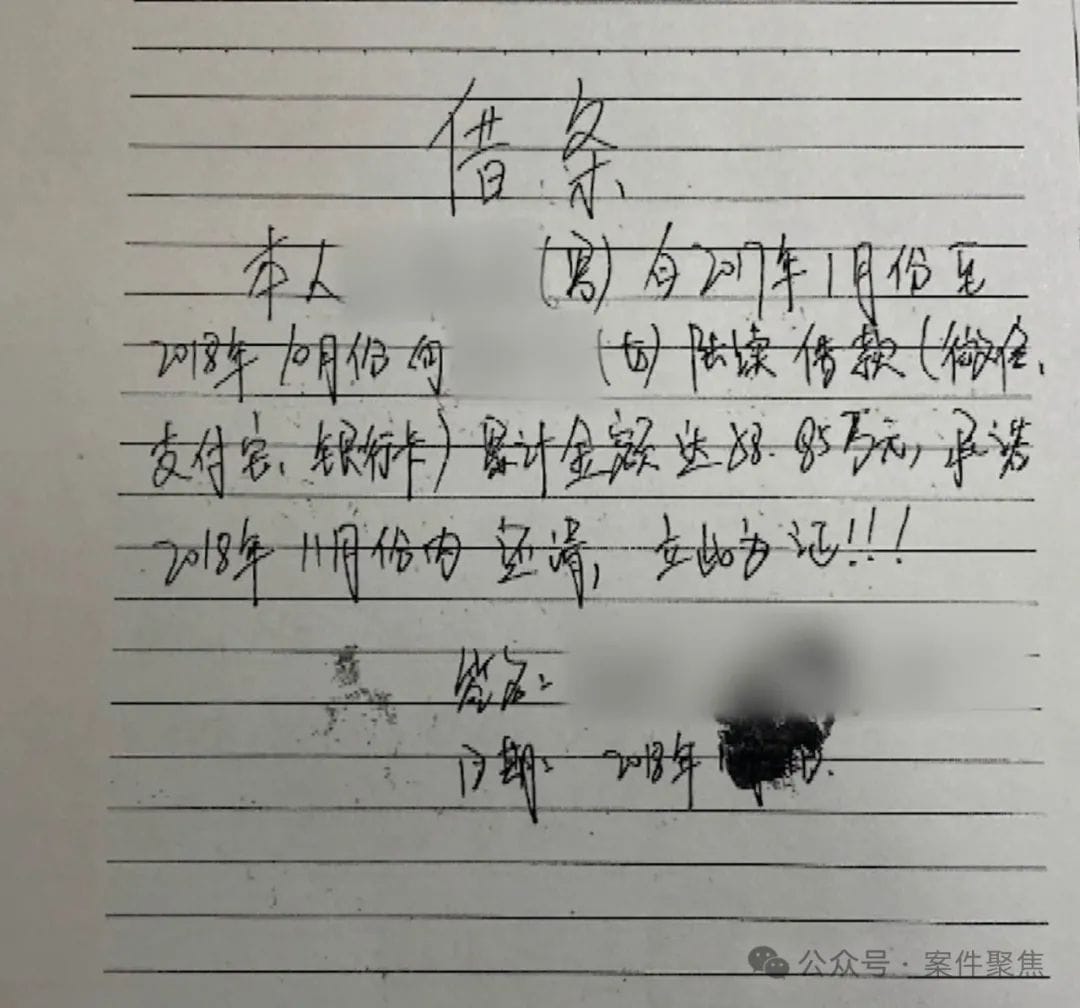 借条
本人 (男) 自2017年1月份至
2018年10月份向 (女) 陆续借款(微信、
支付宝、银行卡)累计金额达 .85万元,承诺
2018年11月份内还清,立此为证!!!
签名:
日期: 2018年
公众号·案件聚焦